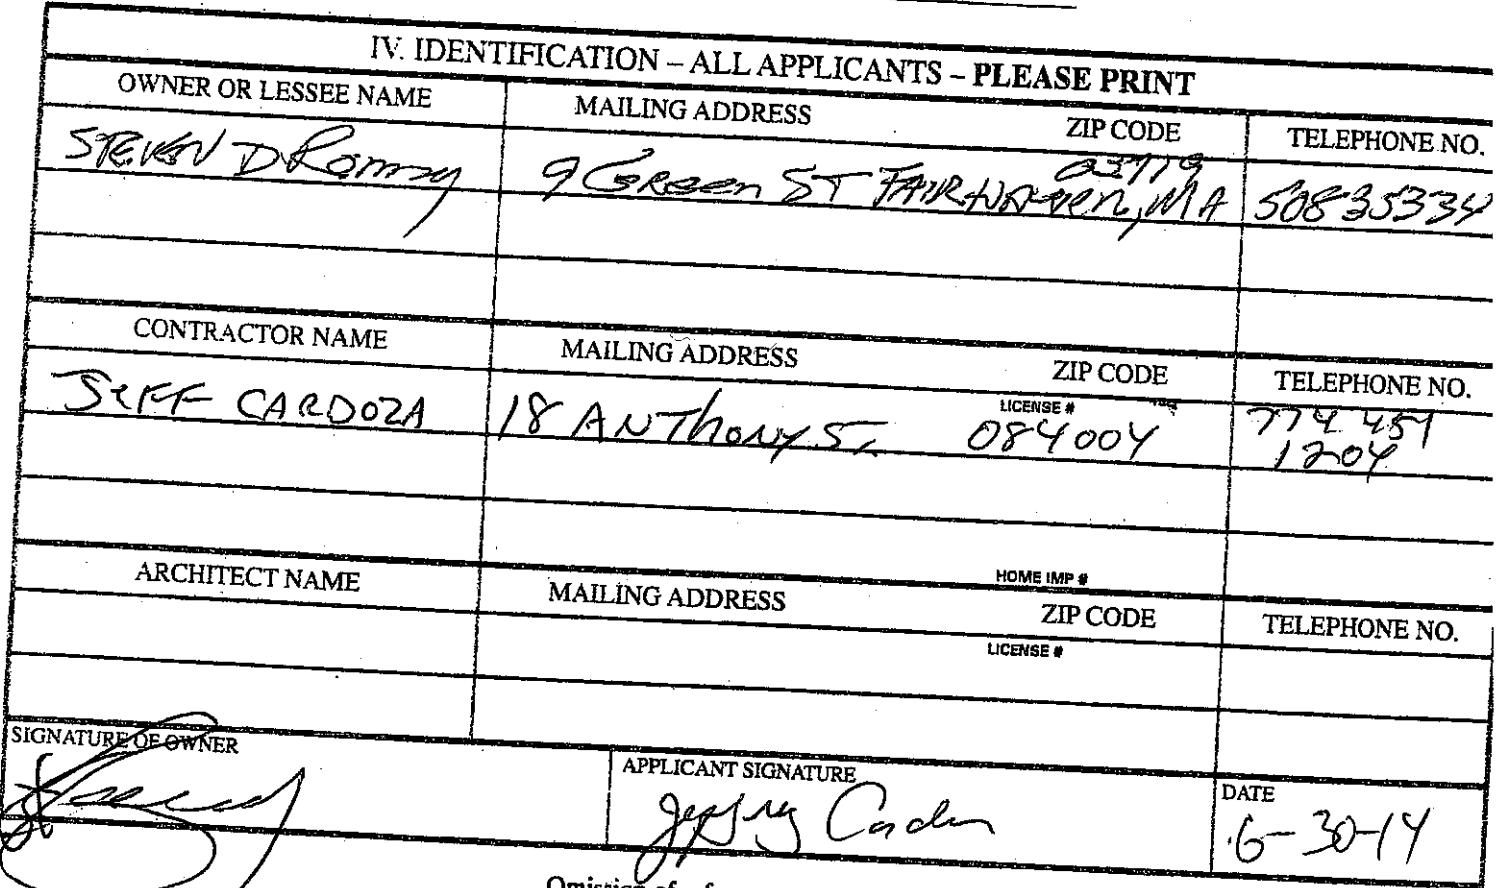 IV. IDENTIFICATION – ALL APPLICANTS – PLEASE PRINT
OWNER OR LESSEE NAME MAILING ADDRESS ZIP CODE TELEPHONE NO.
STEVEN D 9 GREEN ST FAIRHAVEN, MA 50835334
CONTRACTOR NAME MAILING ADDRESS ZIP CODE TELEPHONE NO.
LICENSE #
JEFF CARDOZA 18 ANThony ST. 084004 774 451
1204
HOME IMP #
ARCHITECT NAME MAILING ADDRESS ZIP CODE TELEPHONE NO.
LICENSE #
SIGNATURE OF OWNER APPLICANT SIGNATURE DATE
6-30-14
Omission of